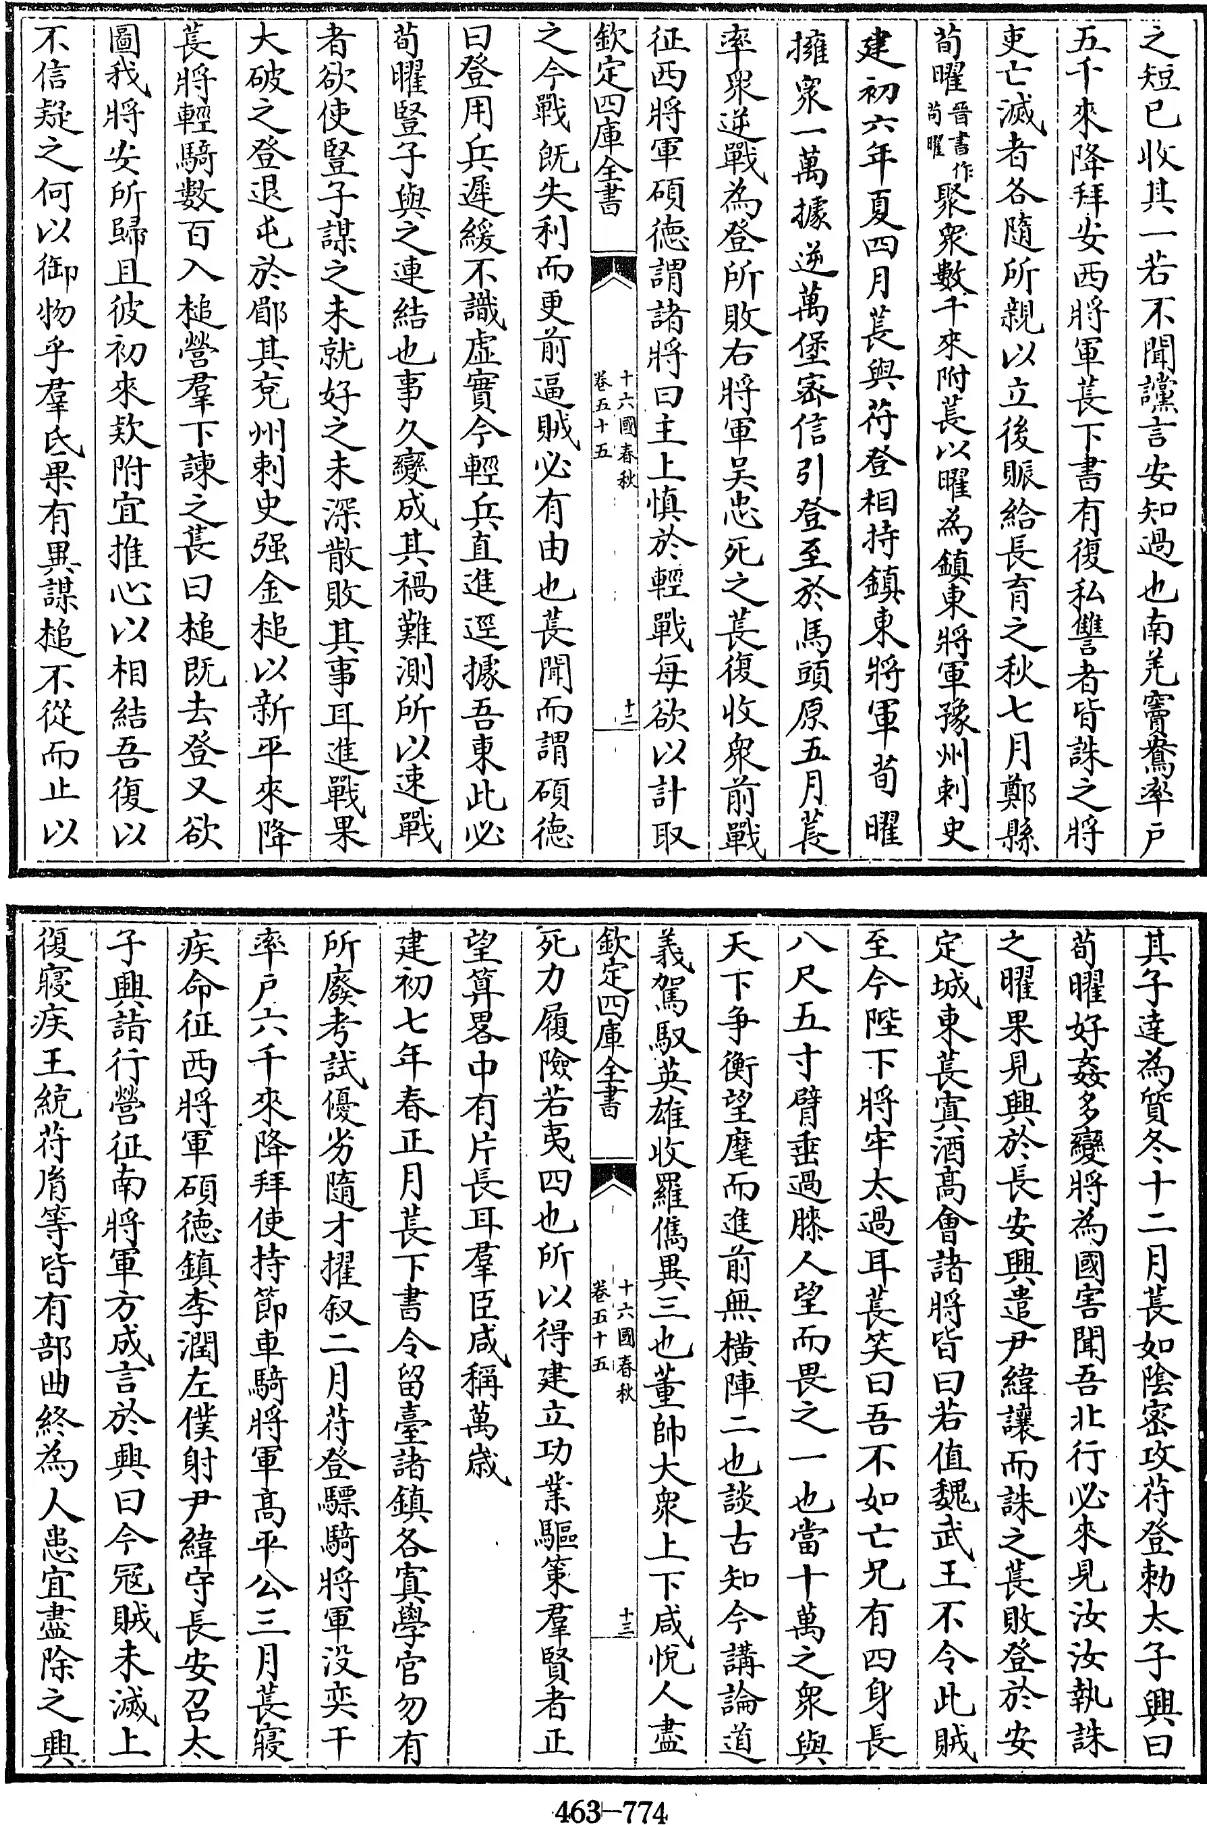 之短已收其一若不聞讜言安知過也南羌竇鴦率户
五千來降拜安西將軍萇下書有復私讐者皆誅之將
吏亡滅者各隨所親以立後賑給長育之秋七月鄭縣
荀曜晉書作苟曜聚衆數千來附萇以曜為鎮東將軍豫州刺史
建初六年夏四月萇與苻登相持鎮東將軍荀曜
擁衆一萬據逆萬堡密信引登至於馬頭原五月萇
率衆逆戰為登所敗右將軍吴忠死之萇復收衆前戰
征西將軍碩徳謂諸將曰主上慎於輕戰每欲以計取
欽定四庫全書
十六國春秋
卷五十五
十二
之今戰既失利而更前逼賊必有由也萇聞而謂碩徳
曰登用兵遲緩不識虚實今輕兵直進逕據吾東此必
荀曜豎子與之連結也事久變成其禍難測所以速戰
者欲使豎子謀之未就好之未深散敗其事耳進戰果
大破之登退屯於郿其兖州刺史强金槌以新平來降
萇將輕騎數百入槌營羣下諫之萇曰槌既去登又欲
圖我將安所歸且彼初來欵附宜推心以相結吾復以
不信疑之何以御物乎羣氐果有異謀槌不從而止以
其子逹為質冬十二月萇如隂密攻苻登勅太子興曰
荀曜好姦多變將為國害聞吾北行必來見汝汝執誅
之曜果見興於長安興遣尹緯讓而誅之萇敗登於安
定城東萇寘酒髙會諸將皆曰若值魏武王不令此賊
至今陛下將牢太過耳萇笑曰吾不如亡兄有四身長
八尺五寸臂垂過膝人望而畏之一也當十萬之衆與
天下争衡望麾而進前無横陣二也談古知今講論道
義駕馭英雄收羅儁異三也董帥大衆上下咸悦人盡
欽定四庫全書
十六國春秋
卷五十五
十三
死力履險若夷四也所以得建立功業驅策羣賢者正
望算畧中有片長耳羣臣咸稱萬歲
建初七年春正月萇下書令留臺諸鎮各寘學官勿有
所廢考試優劣隨才擢叙二月苻登驃騎將軍没奕干
率户六千來降拜使持節車騎將軍髙平公三月萇寢
疾命征西將軍碩徳鎮李潤左僕射尹緯守長安召太
子興詣行營征南將軍方成言於興曰今冦賊未滅上
復寢疾王統苻㣧等皆有部曲終為人患宜盡除之興
463-774